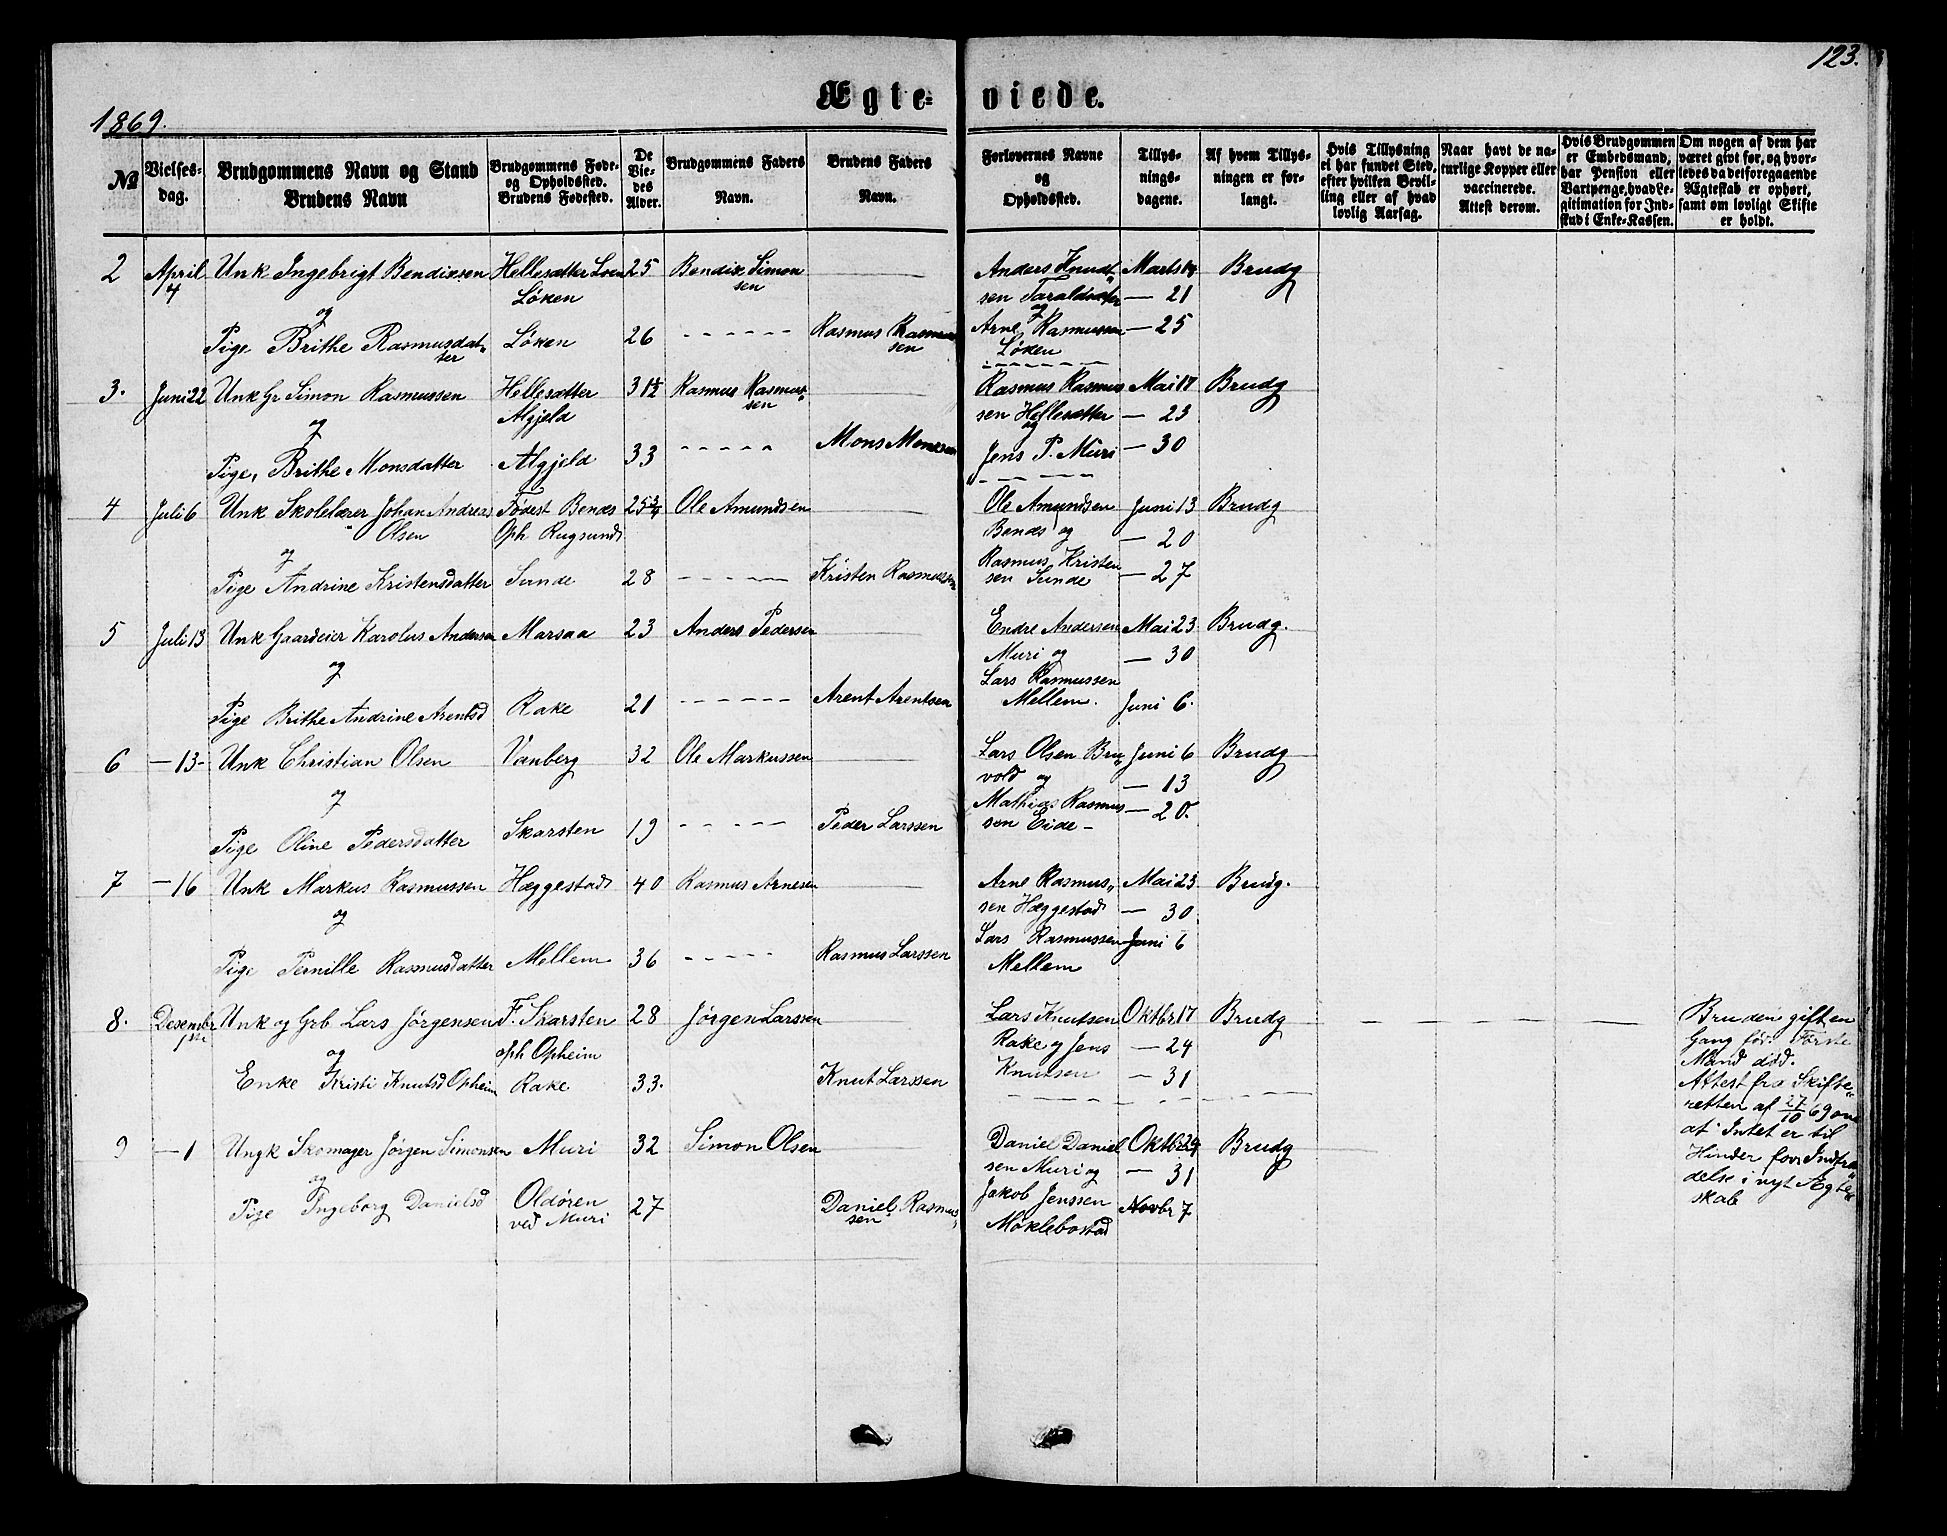 123.
Ægte- viede.
1869.
№
Vielses-
dag.
Brudgommens Navn og Stand
Brudens Navn
Brudgommens Føde-
og Opholdssted.
Brudens Fødested.
De
Vie-
des
Alder.
Brudgommens Faders
Navn.
Brudens Faders
Navn.
Forlovernes Navne
og
Opholdssted.
Tillys-
nings-
dagene.
Af hvem Tillys-
ningen er for-
langt.
Hvis Tillysning
ei har fundet Sted,
efter hvilken Bevil-
ling eller af hvad
lovlig Aarsag.
Naar havt de na-
turlige Kopper eller
vaccinerede.
Attest derom.
Hvis Brudgommen
er Embedsmand,
har Pension eller
Vartpenge, hvad Le-
gitimation for Ind-
skud i Enke-Kassen.
Om nogen af dem har
været givt før, og hvor-
ledes da det foregaaende
Ægteskab er ophørt,
samt om lovligt Skifte
er holdt.
2 April Unk Ingebrigt Bendixsen Hellesætter Loen 25 Bendix Simon Anders Knudt Marts Brudg
4 Løken sen sen Taraldsæter — 21
og og
Pige Brithe Rasmusdat- Løken 26 Rasmus Rasmus Arne Rasmussen — 25
ter sen Løken
3. Juni 22 Unk Gr Simon Rasmussen Hellesætter 31½ Rasmus Rasmus- Rasmus Rasmus Mai 17 Brudg
og Algjeld sen sen Hellesætter — 23
og
Pige, Brithe Monsdatter Algjeld 33 Mons Monssen Jens P. Muri — 30
4 Juli 6 Unk Skolelærer Johan Andreas Fødest Benæs 25¾ Ole Amundsen Ole Amundsen Juni 13 Brudg
Olsen Oph Rugsund Benæs og — 20
og
Pige Andrine Kristensdatter Sunde 28 Kristen Rasmussen Rasmus Kristen — 27
sen Sunde
5 Juli 13 Unk Gaardeier Karolus Andersen Marsaa 23 Anders Pedersen Endre Andersen Mai 23 Brudg.
og Muri og — 30
Lars Rasmussen
Pige Brithe Andrine Arentsd Rake 21 Arent Arentsen Mellem. Juni 6.
6 — 13 - Unk Christian Olsen Vanberg 32 Ole Markussen Lars Olsen Bru Juni 6 Brudg
og vold og — 13
Mathias Rasmus — 20.
Pige Oline Pedersdatter Skarsten 19 Peder Larssen sen Eide -
7 — 16 Unk Markus Rasmussen Hæggestad 40 Rasmus Arnesen Arne Rasmus„ Mai 23 Brudg.
og sen Hæggestad — 30
Lars Rasmussen Juni 6
Pige Pernille Rasmusdatter Mellem 36 Rasmus Larssen Mellem
8. Desembr Unk og Grb Lars Jørgensen F. Skarsten 28 Jørgen Larssen Lars Knutsen Oktbr 17 Brudg Bruden gift en
1ste og oph Opheim Rake og Jens — 24 Gang før. Første
Mand død.
Enke Kristi Knutsd Opheim Rake 33. Knut Larssen Knutsen — 31 Attest fra Skifte„
retten af 27/10 69 om
9 — 1 Ungk Skomager Jørgen Simonsen Muri 32 Simon Olsen Daniel Daniel Oktbr 24 Brudg at Intet er til
og sen Muri og — 31 Hinder for Indtræ
Pige Ingeborg Danielsd Oldøren 27 Daniel Rasmus„ Jakob Jenssen Novbr 7 delse i nyt Ægte„
ved Muri sen Møklebostad skab